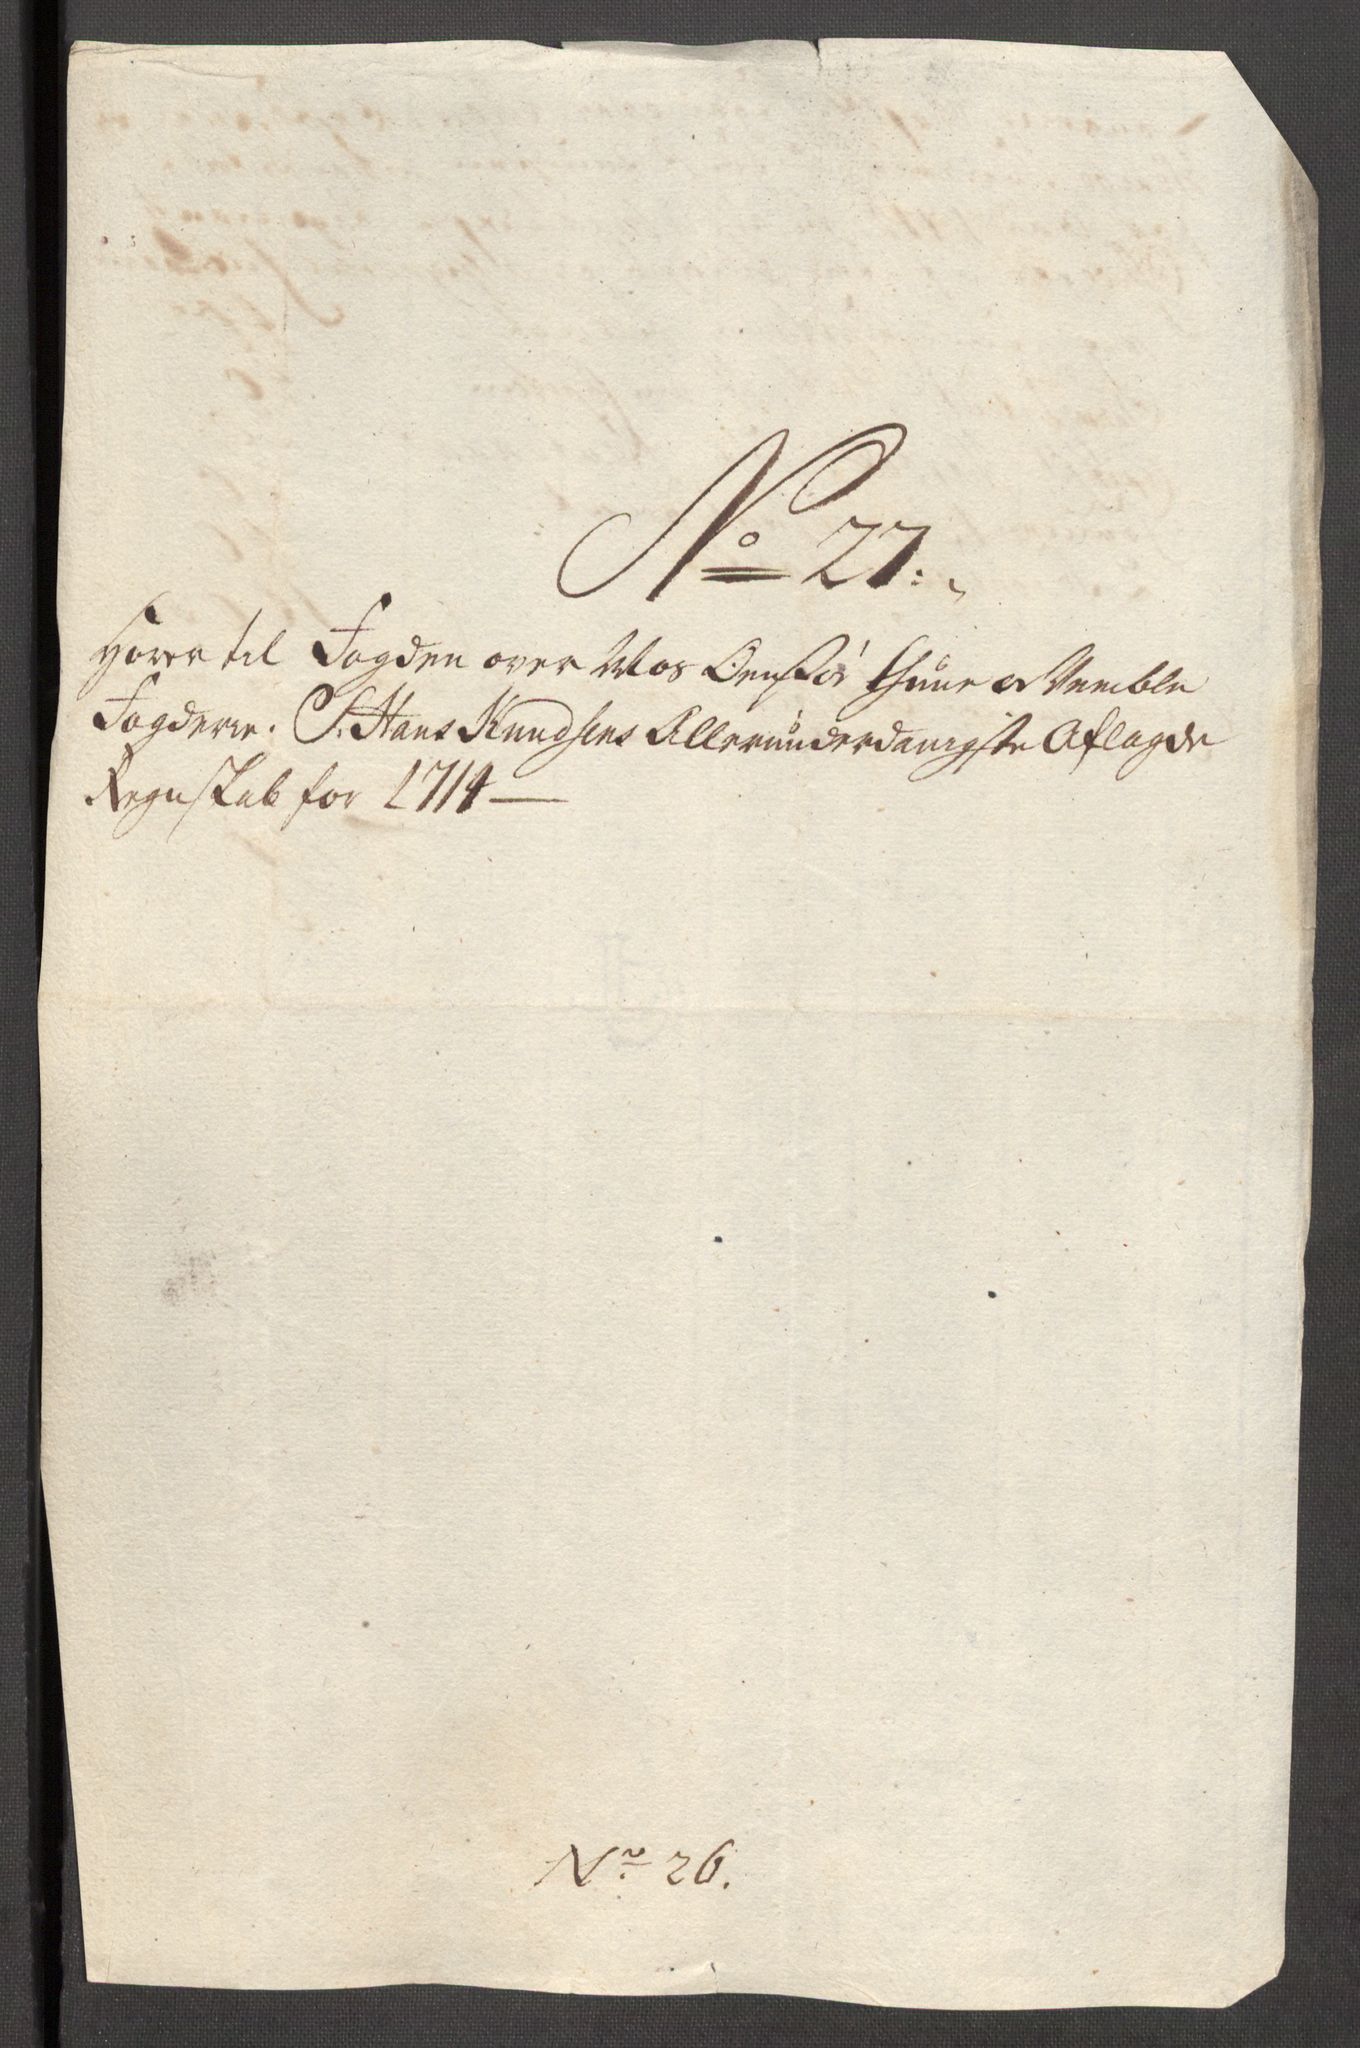 No 27.
Hører til Fogden over Mos Onsøe Thune oc Vemble
Fogderie. S. Hans Knudsens Allerunderdanigste Aflagde
Regnskab for 1714 —
No 26.